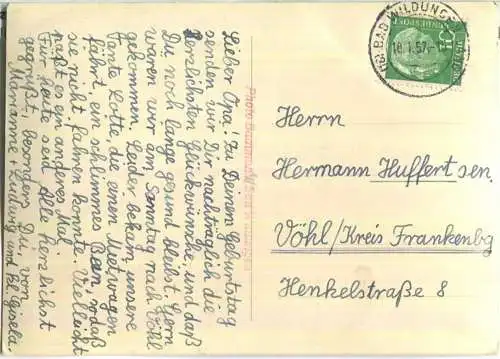 Lieber Opa! Zu Deinem Geburtstag
senden wir Dir nachträglich die
herzlichsten Glückwünsche, und daß
Du noch lange gesund bleibst. Gern
wären wir am Sonntag nach Vöhl
gekommen. Leider bekam unsere
Tante Lotte, die einen Mietwagen
fährt, ein schlimmes Bein, sodaß
sie nicht fahren konnte. Vielleicht
paßt es ein anderes Mal.
Für heute seid Alle herzlichst
gegrüßt, besonders Du, von
Marianne und Gisela.
BAD WILDUNGEN
18.1.57
Herrn
Hermann Huffert sen.
Vöhl/Kreis Frankenbg
Henkelstraße 8